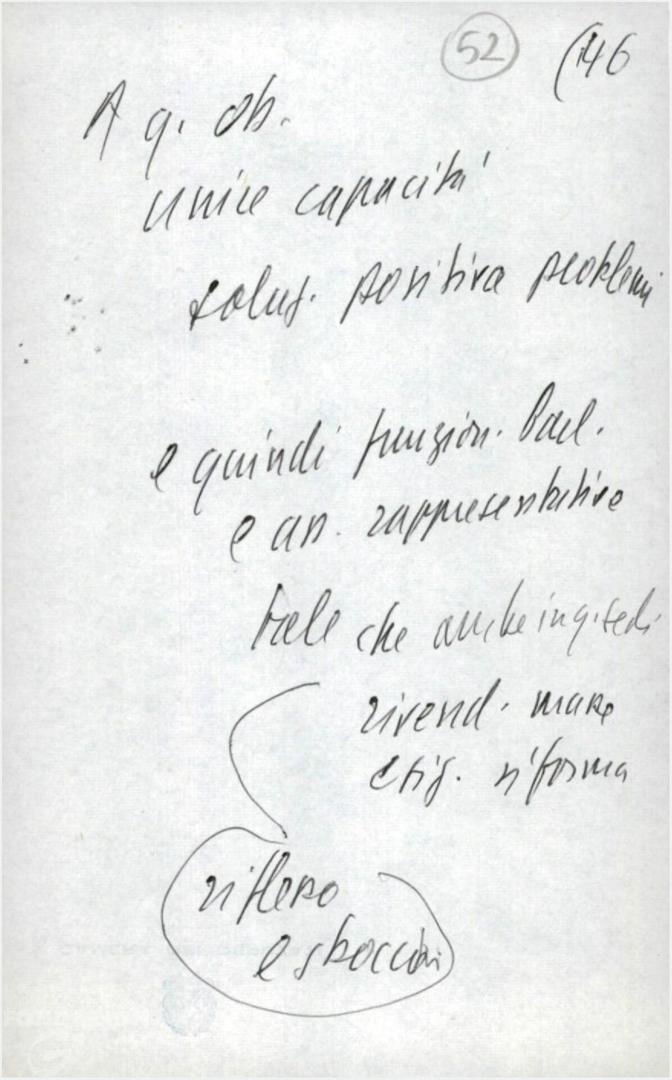 52 (146
A q. ob.
unire capacità
soluz. positiva problemi
e quindi funzion. Parl.
e an. rappresentative
tale che anche in q. sedi
rivend. masse
esig. riforma
riflesso
e sbocchi